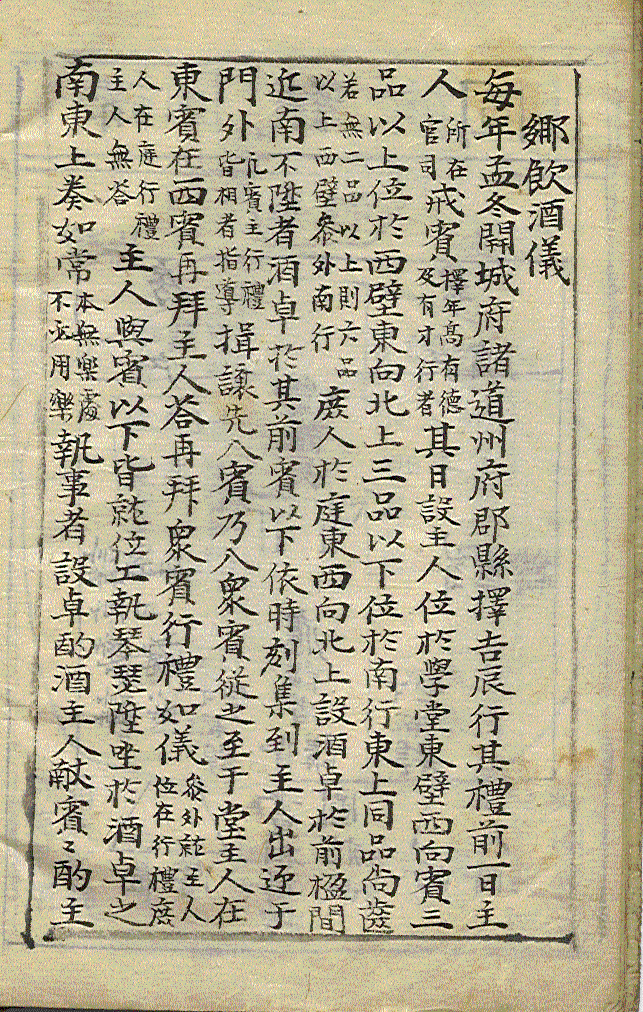 鄉飲酒儀
每年孟冬開城府諸道州府郡縣擇吉辰行其禮前一日主
人所在官司戒賓擇年高有德及有才行者其日設主人位扵學堂東壁西向賓三
品以上位扵西壁東向北上三品以下位扵南行東上同品尚齒
若無二品以上則六品以上西壁叅外南行庶人扵庭東西向北上設酒卓扵前楹間
近南不陞者酒卓扵其前賓以下依時刻集到主人出迎于
門外凡賓主行禮皆相者指導揖讓先入賓乃入衆賓從之至于堂主人在
東賓在西賓再拜主人荅再拜衆賓行禮如儀叅外就主人位在行禮庶
人在庭行禮主人無荅主人與賓以下皆就位工執琴瑟陞坐扵酒卓之
南東上奏如常本無樂處不必用樂執事者設卓酌酒主人献賓〻酌主